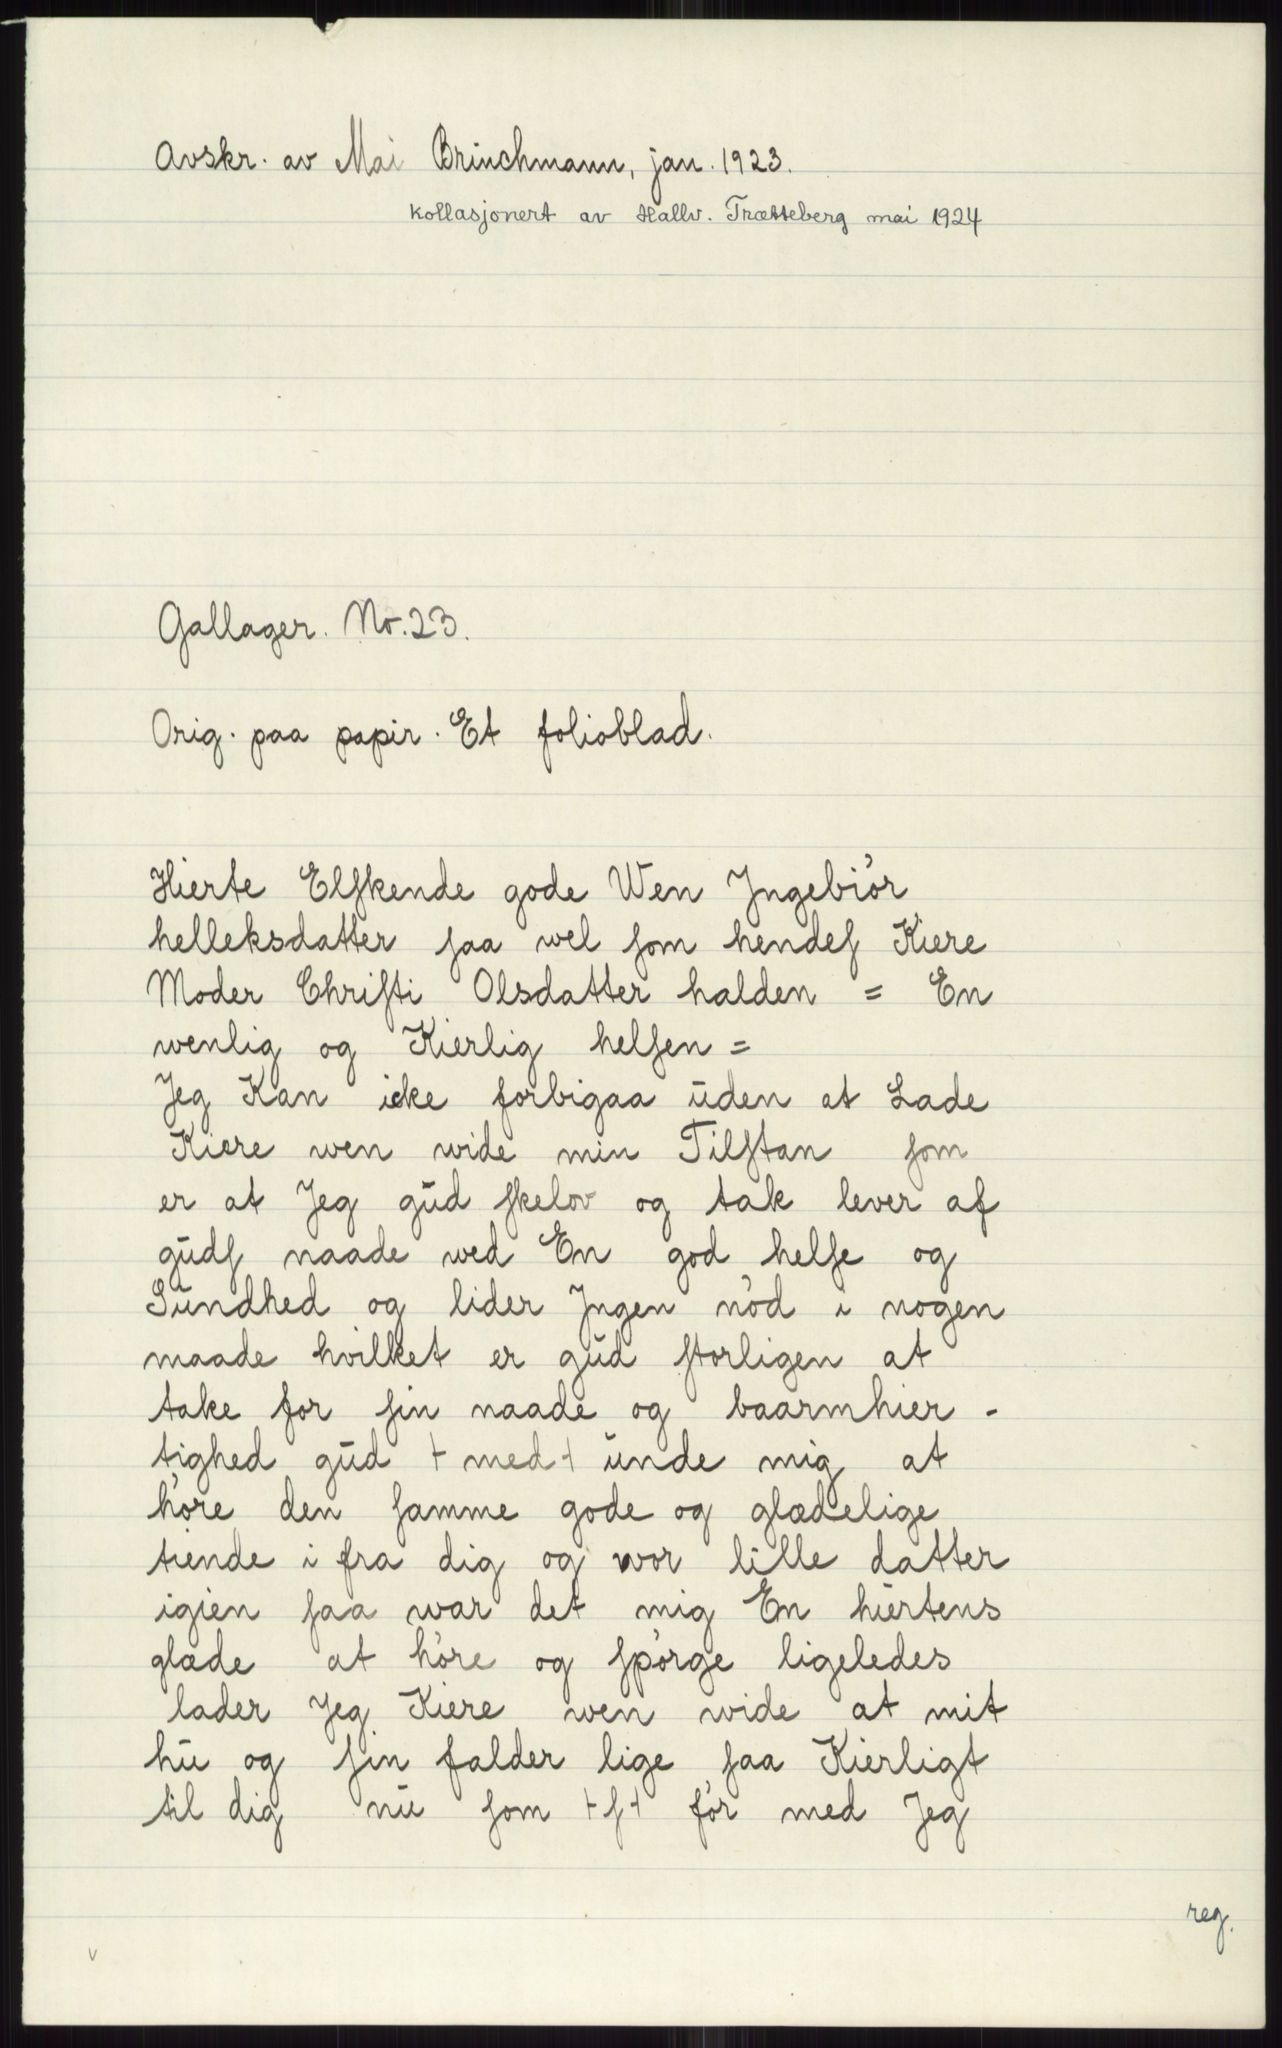 Avskr. av Mai Brinchmann, jan. 1923.
kollasjonert av Hallv. Trætteberg mai 1924
Gallager. No. 23.
Orig. paa papir. Et folioblad.
Hierte Elſkende gode Wen Jngebiór
helleksdatter ſaa wel ſom hendeſ Kiere
Moder Chriſti Olsdatter halden = En
wenlig og Kierlig helſen =
Jeg Kan icke forbigaa ūden at Lade
Kiere wen wide min Tilſtan ſom
er at Jeg gūd ſkelov og tak lever af
gūdſ naade wed En god helſe og
Sūndhed og lider Jngen nód i nogen
maade hvilket er gūd ſtorligen at
take for ſin naade og baarmhier -
tighed gūd + med + ūnde mig at
hóre den ſamme gode og glædelige
tiende i fra dig og wor lille datter
igien ſaa war det mig En hiertens
glæde at hóre og ſpórge ligeledes
lader Jeg Kiere wen wide at mit
hū og ſin falder lige ſaa Kierligt
til dig nū ſom + ſ + fór med Jeg
reg.
v